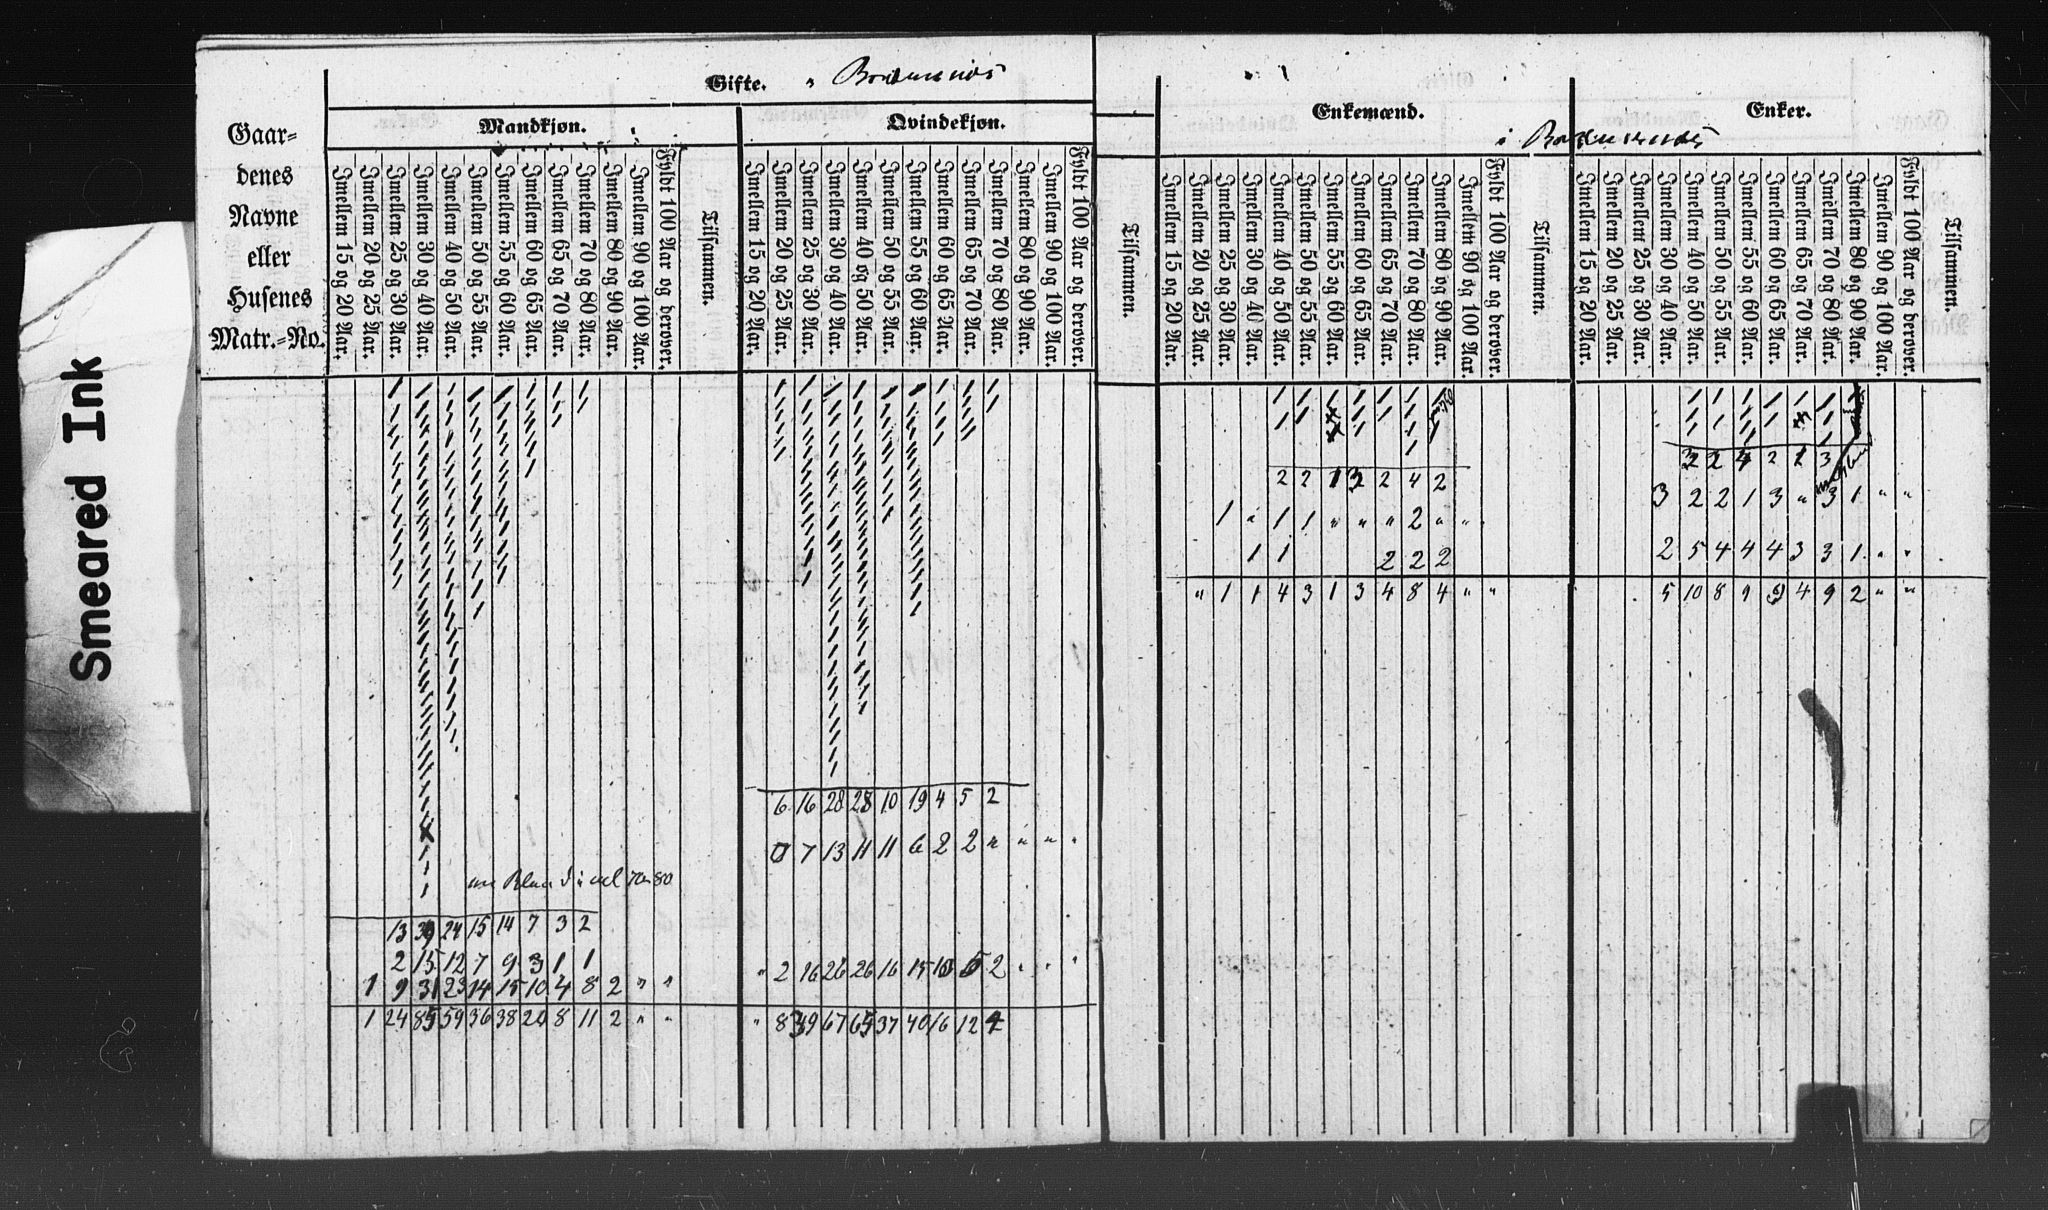 Smeared Ink
Gifte.
Mandkjøn.
Qvindekjøn.
Gaar=
denes
Navne
eller
Husenes
Matr.=No.
Imellem 15 og 20 Aar.
Imellem 20 og 25 Aar.
Imellem 25 og 30 Aar.
Imellem 30 og 40 Aar.
Imellem 40 og 50 Aar.
Imellem 50 og 55 Aar.
Imellem 55 og 60 Aar.
Imellem 60 og 65 Aar.
Imellem 65 og 70 Aar.
Imellem 70 og 80 Aar.
Imellem 80 og 90 Aar.
Imellem 90 og 100 Aar.
Fyldt 100 Aar og derover.
Tilsammen.
Imellem 15 og 20 Aar.
Imellem 20 og 25 Aar.
Imellem 25 og 30 Aar.
Imellem 30 og 40 Aar.
Imellem 40 og 50 Aar.
Imellem 50 og 55 Aar.
Imellem 55 og 60 Aar.
Imellem 60 og 65 Aar.
Imellem 65 og 70 Aar.
Imellem 70 og 80 Aar.
Imellem 80 og 90 Aar.
Imellem 90 og 100 Aar.
Fyldt 100 Aar og derover.
6 16 28 28 10 19 4 5 2
7 13 11 11 6 2 2 " " " "
13 39 24 15 14 7 3 2
2 15 12 7 9 3 1 1
1 9 31 23 14 15 10 4 8 2 " "
" 2 16 26 26 16 15 10 5 2 " " "
1 24 85 59 36 38 20 8 11 2 " "
" 8 39 67 65 37 40 16 12 4
Enkemænd.
Enker.
Tilsammen.
Imellem 15 og 20 Aar.
Imellem 20 og 25 Aar.
Imellem 25 og 30 Aar.
Imellem 30 og 40 Aar.
Imellem 40 og 50 Aar.
Imellem 50 og 55 Aar.
Imellem 55 og 60 Aar.
Imellem 60 og 65 Aar.
Imellem 65 og 70 Aar.
Imellem 70 og 80 Aar.
Imellem 80 og 90 Aar.
Imellem 90 og 100 Aar.
Fyldt 100 Aar og derover.
Tilsammen.
Imellem 15 og 20 Aar.
Imellem 20 og 25 Aar.
Imellem 25 og 30 Aar.
Imellem 30 og 40 Aar.
Imellem 40 og 50 Aar.
Imellem 50 og 55 Aar.
Imellem 55 og 60 Aar.
Imellem 60 og 65 Aar.
Imellem 65 og 70 Aar.
Imellem 70 og 80 Aar.
Imellem 80 og 90 Aar.
Imellem 90 og 100 Aar.
Fyldt 100 Aar og derover.
Tilsammen.
2 2 1 3 2 4 2
2 2 4 2 1 3
3 2 2 1 3 " 3 1 " "
1 " 1 1 " " " 2 " " "
1 1 2 2 2
2 5 4 4 4 3 3 1 " "
" 1 1 4 3 1 3 4 8 4 " "
5 10 8 9 9 4 9 2 " "